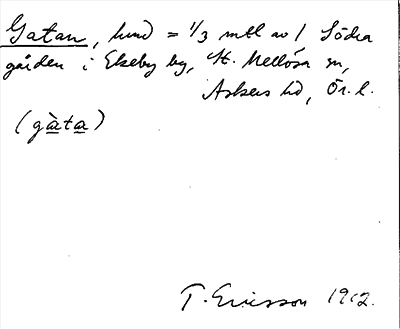 Gatan, hmd = 1/3 mtl av 1 Södra
gården i Ekeby by, St. Mellösa sn,
Askers hd, Ör. l.
(gàta)
T. Ericsson 1912.